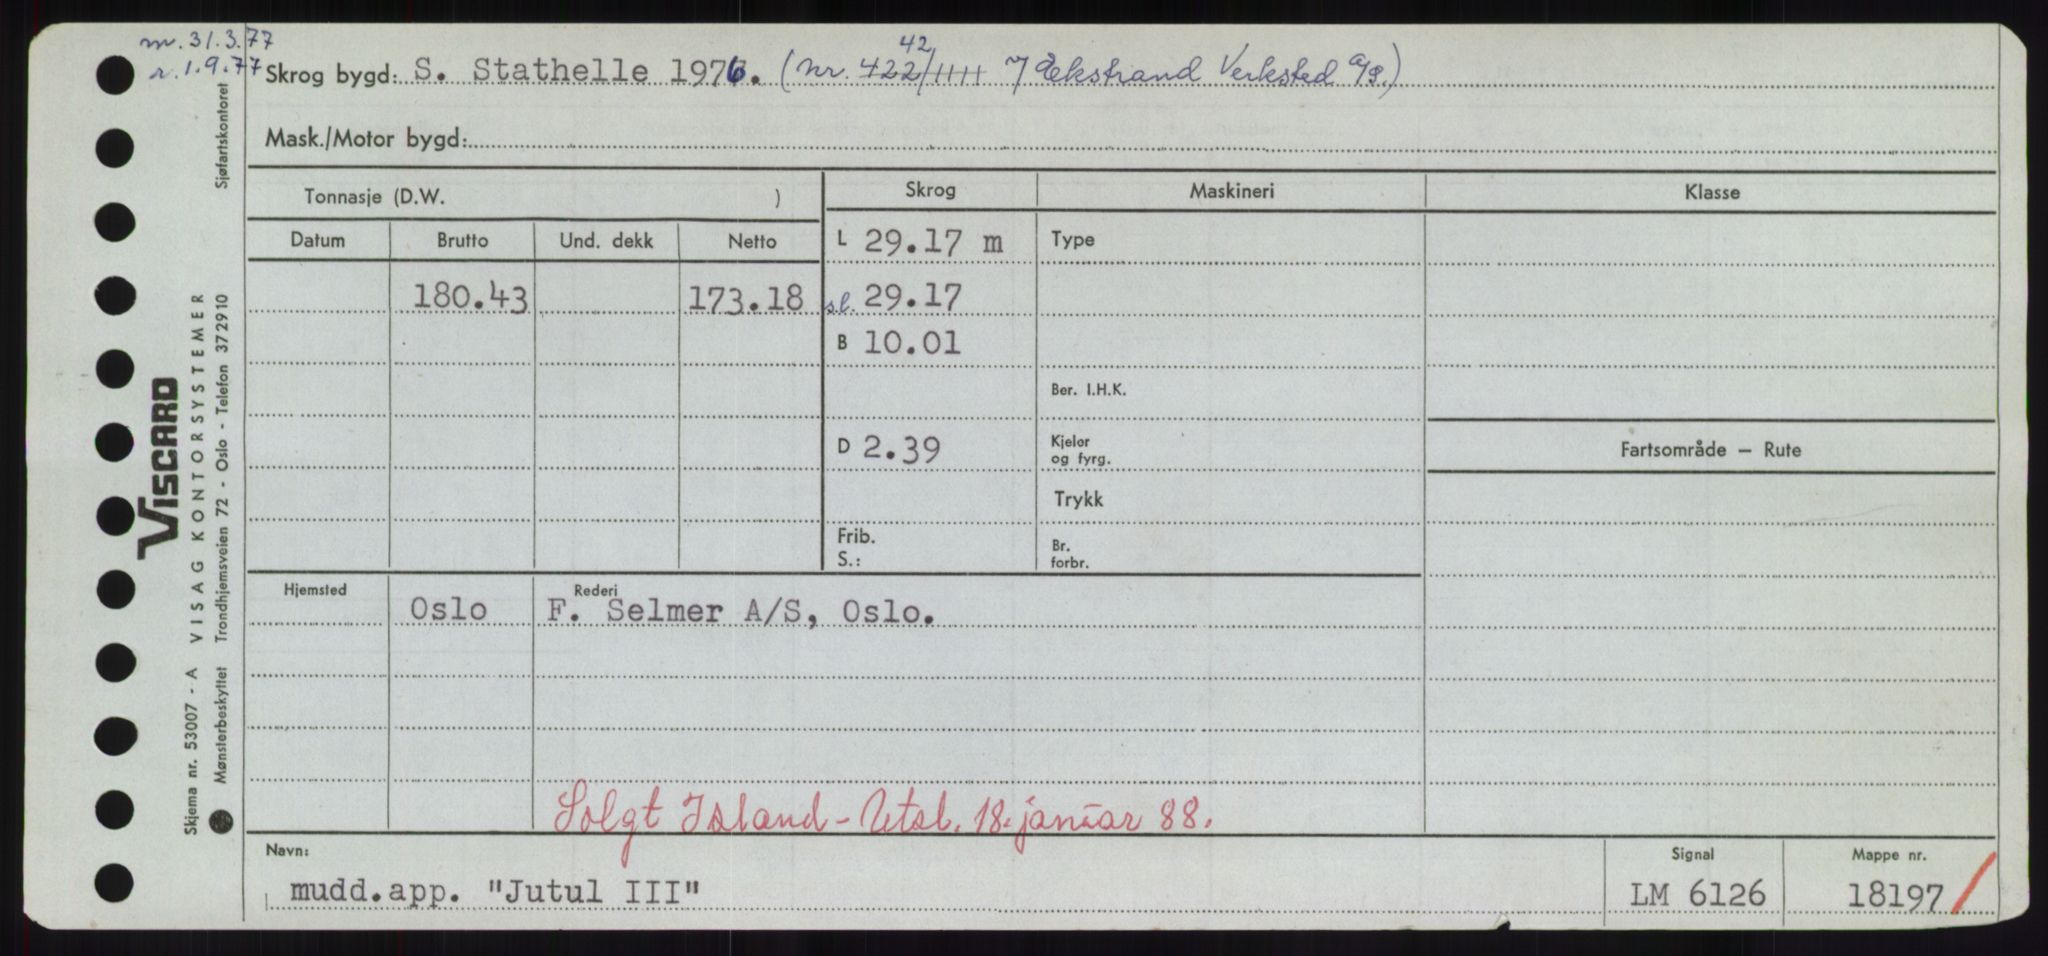 m. 31.3.77
r. 1.9.77
Skrog bygd: S. Stathelle 1976. (nr. 422/1111 Ekstrand Verksted A/S.)
42
Mask./Motor bygd:
Sjøfartskontoret
Tonnasje (D.W. )
Skrog Maskineri Klasse
Datum Brutto Und. dekk Netto
L 29.17 m Type
180.43 173.18 sl. 29.17
B 10.01
Ber. I.H.K.
D 2.39 Kjeler og fyrg.
Fartsområde – Rute
Trykk
Frib.
S.:
Br. forbr.
Hjemsted Rederi
Oslo F. Selmer A/S, Oslo.
Solgt Island - Utsl. 18. januar 88.
Navn: Signal Mappe nr.
mudd.app. "Jutul III" LM 6126 18197
VISCARD
Skjema nr. 53007 - A VISAG KONTORSYSTEMER
Mønsterbeskyttet Trondhjemsveien 72 - Oslo - Telefon 372910